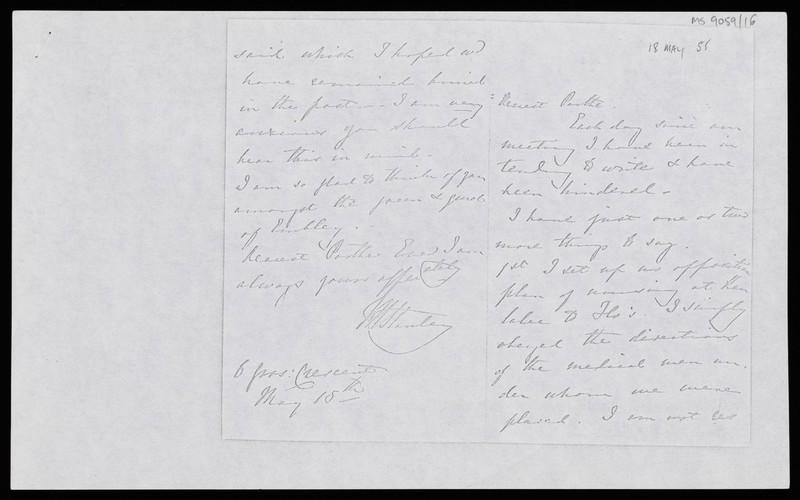 MS 9059/16
18 MAY 56
said which I hoped wd
have remained buried
in the past -- I am very
anxious you should
bear this in mind.
I am so glad to think of you
amongst the green &
of Embley.
Dearest Parthe Ever I am
always yours affectely
MStanley
6 Gros: Crescent
May 18th
Dearest Parthe.
Each day since our
meeting I have been in
tending to write & have
been hindered.
I have just one or two
more things to say.
1st I set up no opposition
plan of nursing at Kou
lalee to Flo's. I simply
obeyed the directions
of the medical men un
der whom we were
placed. I am not